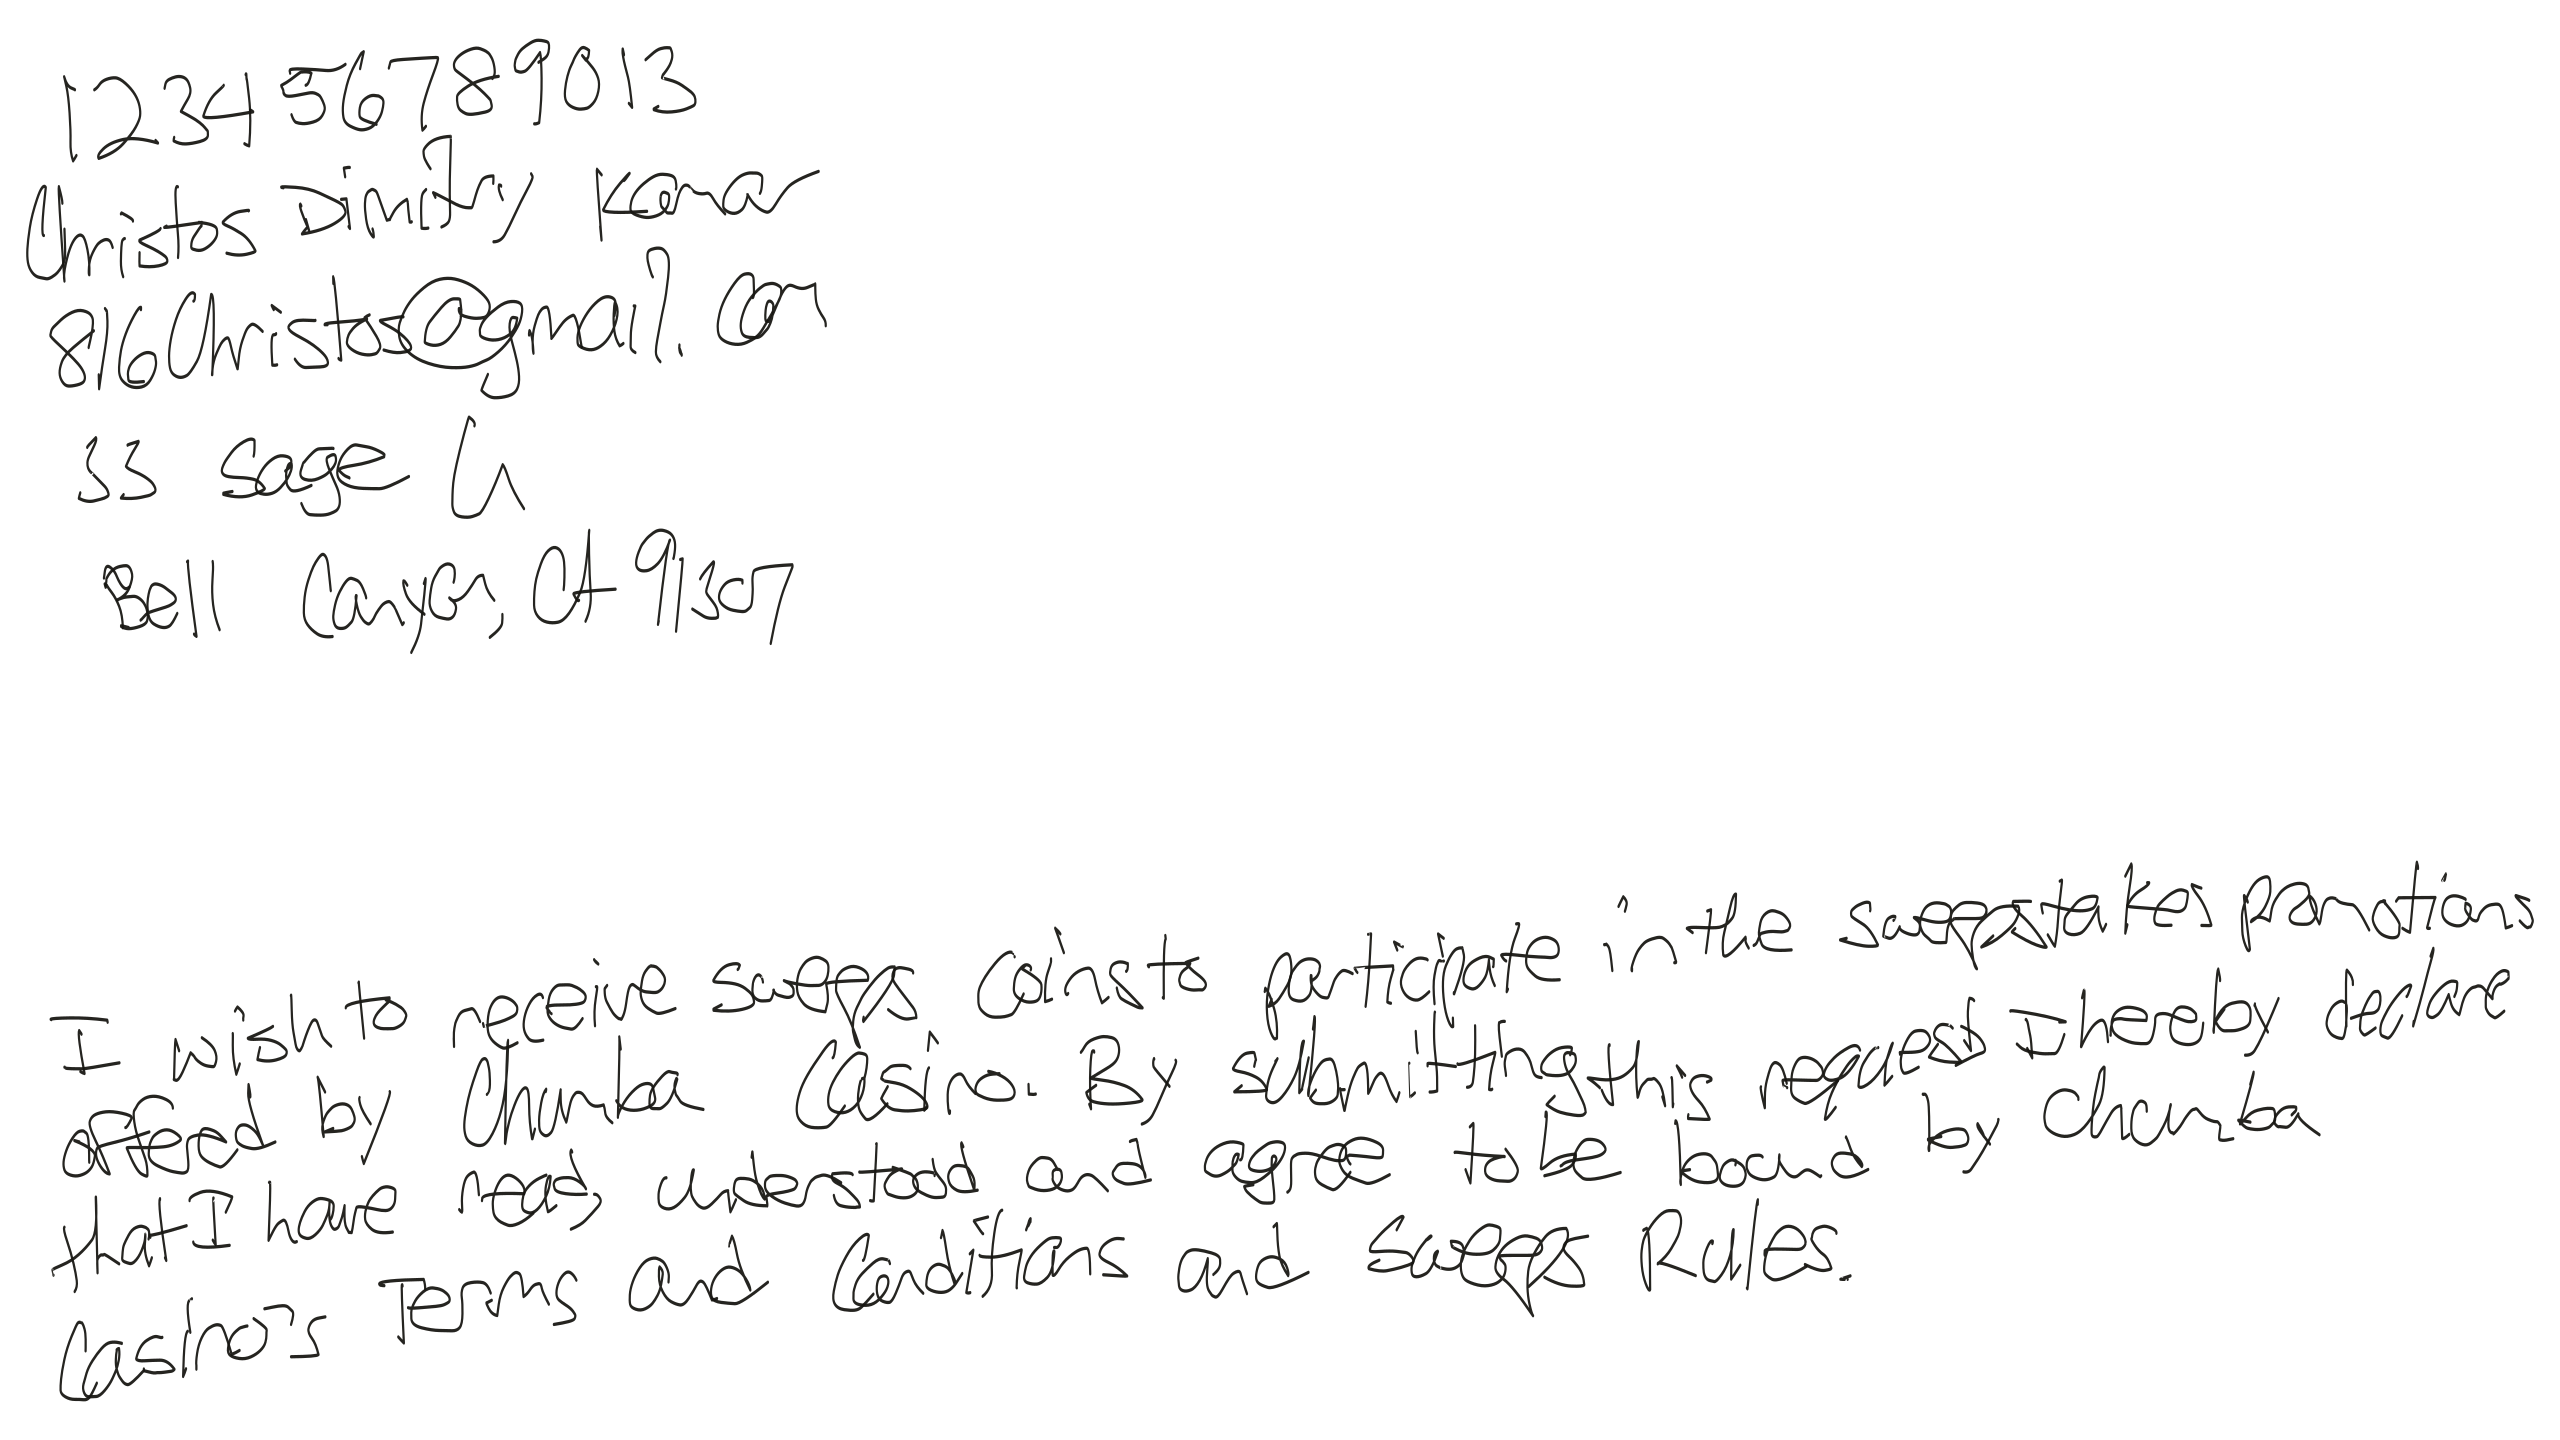 123456789013
Christos Dimitry Kamar
816Christos@gmail.com
33 Sage Ln
Bell Canyon, CA 91307
I wish to receive sweeps coins to participate in the sweepstakes promotions
offered by Chumba Casino. By submitting this request I hereby declare
that I have read, understood and agree to be bound by Chumba
Casino's Terms and Conditions and Sweeps Rules.